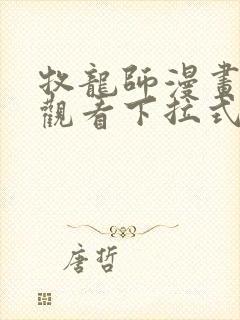 牧龍師漫畫
觀看下拉式
唐哲